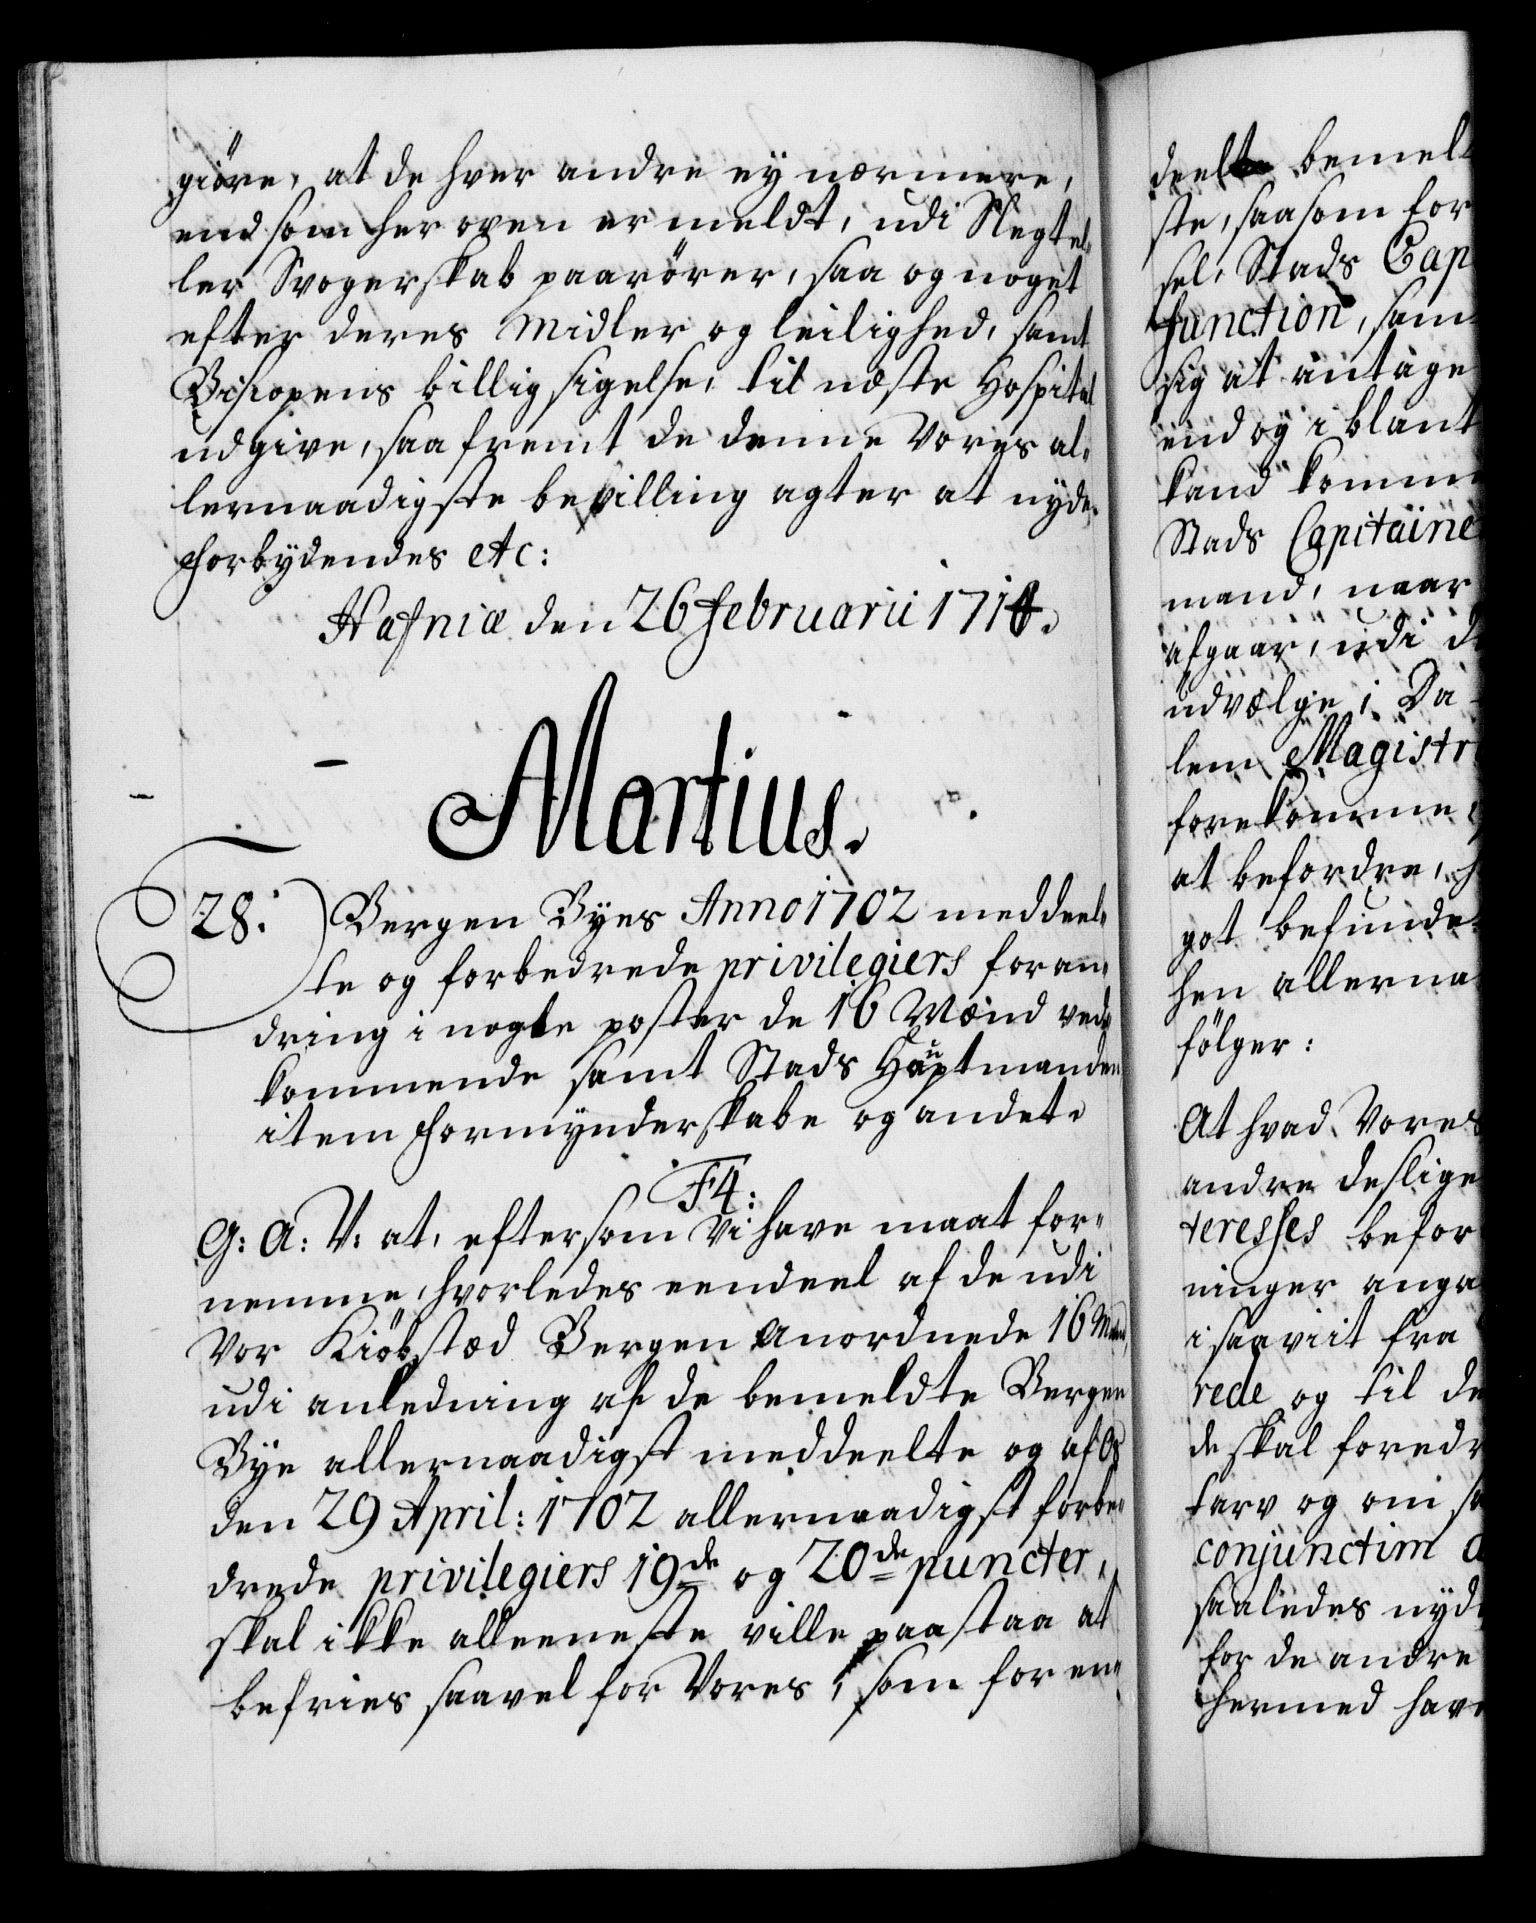 giöre, at de hver andre ey nærmere,
end som her oven er meldt, udi Slegtel„
ler Svogerskab paarörer, saa og noget
efter deres Midler og leilighed, samt
Biscopens billig sigelse, til næste Hospital
udgive, saafremt de denne Vores al„
lernaadigste bevilling agter at nyde.
Forbydendes etc:
Hafniæ den 26 Februarii 1714.
Martius.
28. Bergen Byes Anno 1702 meddeel„
te og forbedrede privilegiers foran„
dring i nogle poster de 16 Mænd ved„
kommende samt Stads Hauptmanden
item Formynderskabe og andet.
F4:
G: A: V: at, eftersom Vi have maat for„
nemme, hvorledes eendeel af de udi
Vor Kiöbstæd Bergen anordnede 16 Mænd,
udi anledning af de bemeldte Bergen
Bye allernaadigst meddeelte og af Os
den 29 April: 1702 allernaadigst forbe„
drede privilegiers 19de og 20de puncter,
skal ikke alleeneste ville paastaa at
befries saavel for Vores, som for en„
deelte bemel
ste, saasom for
sel, Stads Cap
function, sam
sig at antage
end og i blant
kand komme
Stads Capitaine
mand, naar
afgaar, udi d
udvælge; Da
lem Magistr
forekomme,
at befordre, h
got befunde
hen allerna
fölger:
At hvad Vores
andre deslige
teresses befor
ninger anga
i saaviit fra
rede og til de
de skal foredr
tarv og om sa
conjunctim a
saaledes nyde
for de andre
hermed have